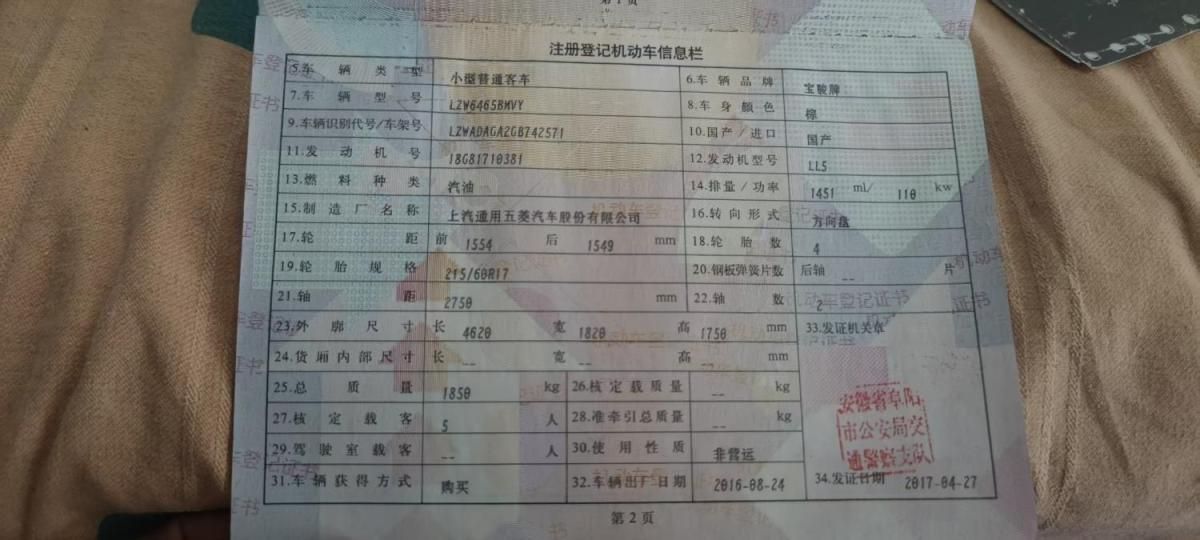 第1页
注册登记机动车信息栏
5.车辆类型 小型普通客车 6.车辆品牌 宝骏牌
7.车辆型号 LZW6465BMVY 8.车身颜色 棕
9.车辆识别代号/车架号 LZWADAGA2GB742571 10.国产/进口 国产
11.发动机号 18G81710381 12.发动机型号 LL5
13.燃料种类 汽油 14.排量/功率 1451 ml/ 110 kw
15.制造厂名称 上汽通用五菱汽车股份有限公司 16.转向形式 方向盘
17.轮距 前 1554 后 1549 mm 18.轮胎数 4
19.轮胎规格 215/60R17 20.钢板弹簧片数 后轴 -- 片
21.轴距 2750 mm 22.轴数 2
23.外廓尺寸 长 4620 宽 1820 高 1750 mm 33.发证机关章
24.货厢内部尺寸 长 -- 宽 -- 高 -- mm
25.总质量 1850 kg 26.核定载质量 -- kg
安徽省阜阳
市公安局交
通警察支队
27.核定载客 5 人 28.准牵引总质量 -- kg
29.驾驶室载客 -- 人 30.使用性质 非营运
31.车辆获得方式 购买 32.车辆出厂日期 2016-08-24 34.发证日期 2017-04-27
第2页